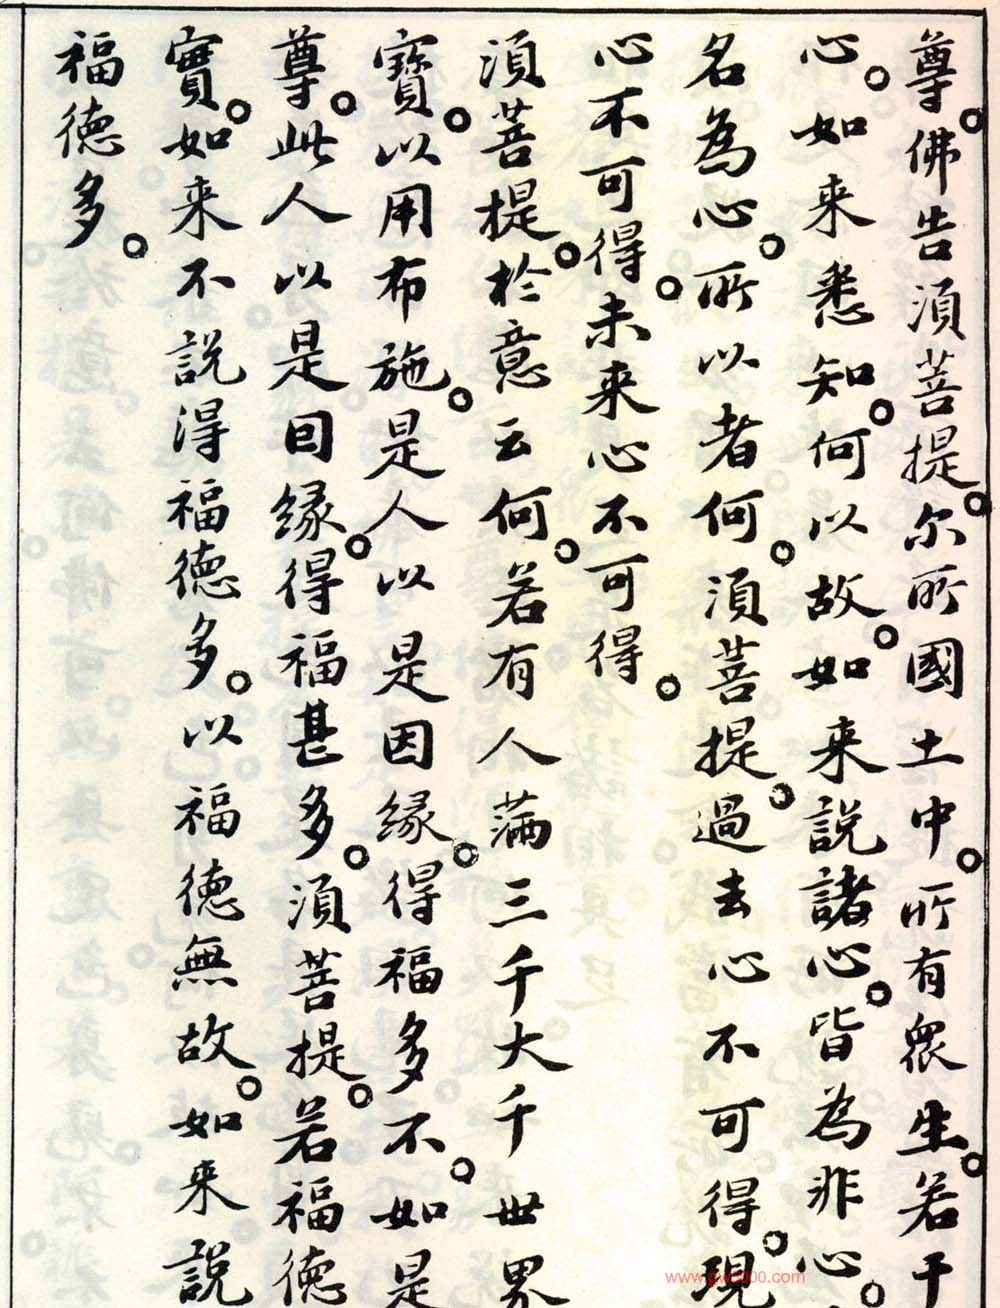 尊。佛告須菩提。尔所國土中。所有眾生。若干
心。如来悉知。何以故。如来說諸心。皆為非心。
名為心。所以者何。須菩提。過去心不可得。現
心不可得。未来心不可得。
須菩提。於意云何。若有人滿三千大千世界
寶。以用布施。是人以是因緣。得福多不。如是
尊。此人以是因緣。得福甚多。須菩提。若福德
實。如来不說得福德多。以福德無故。如来說
福德多。